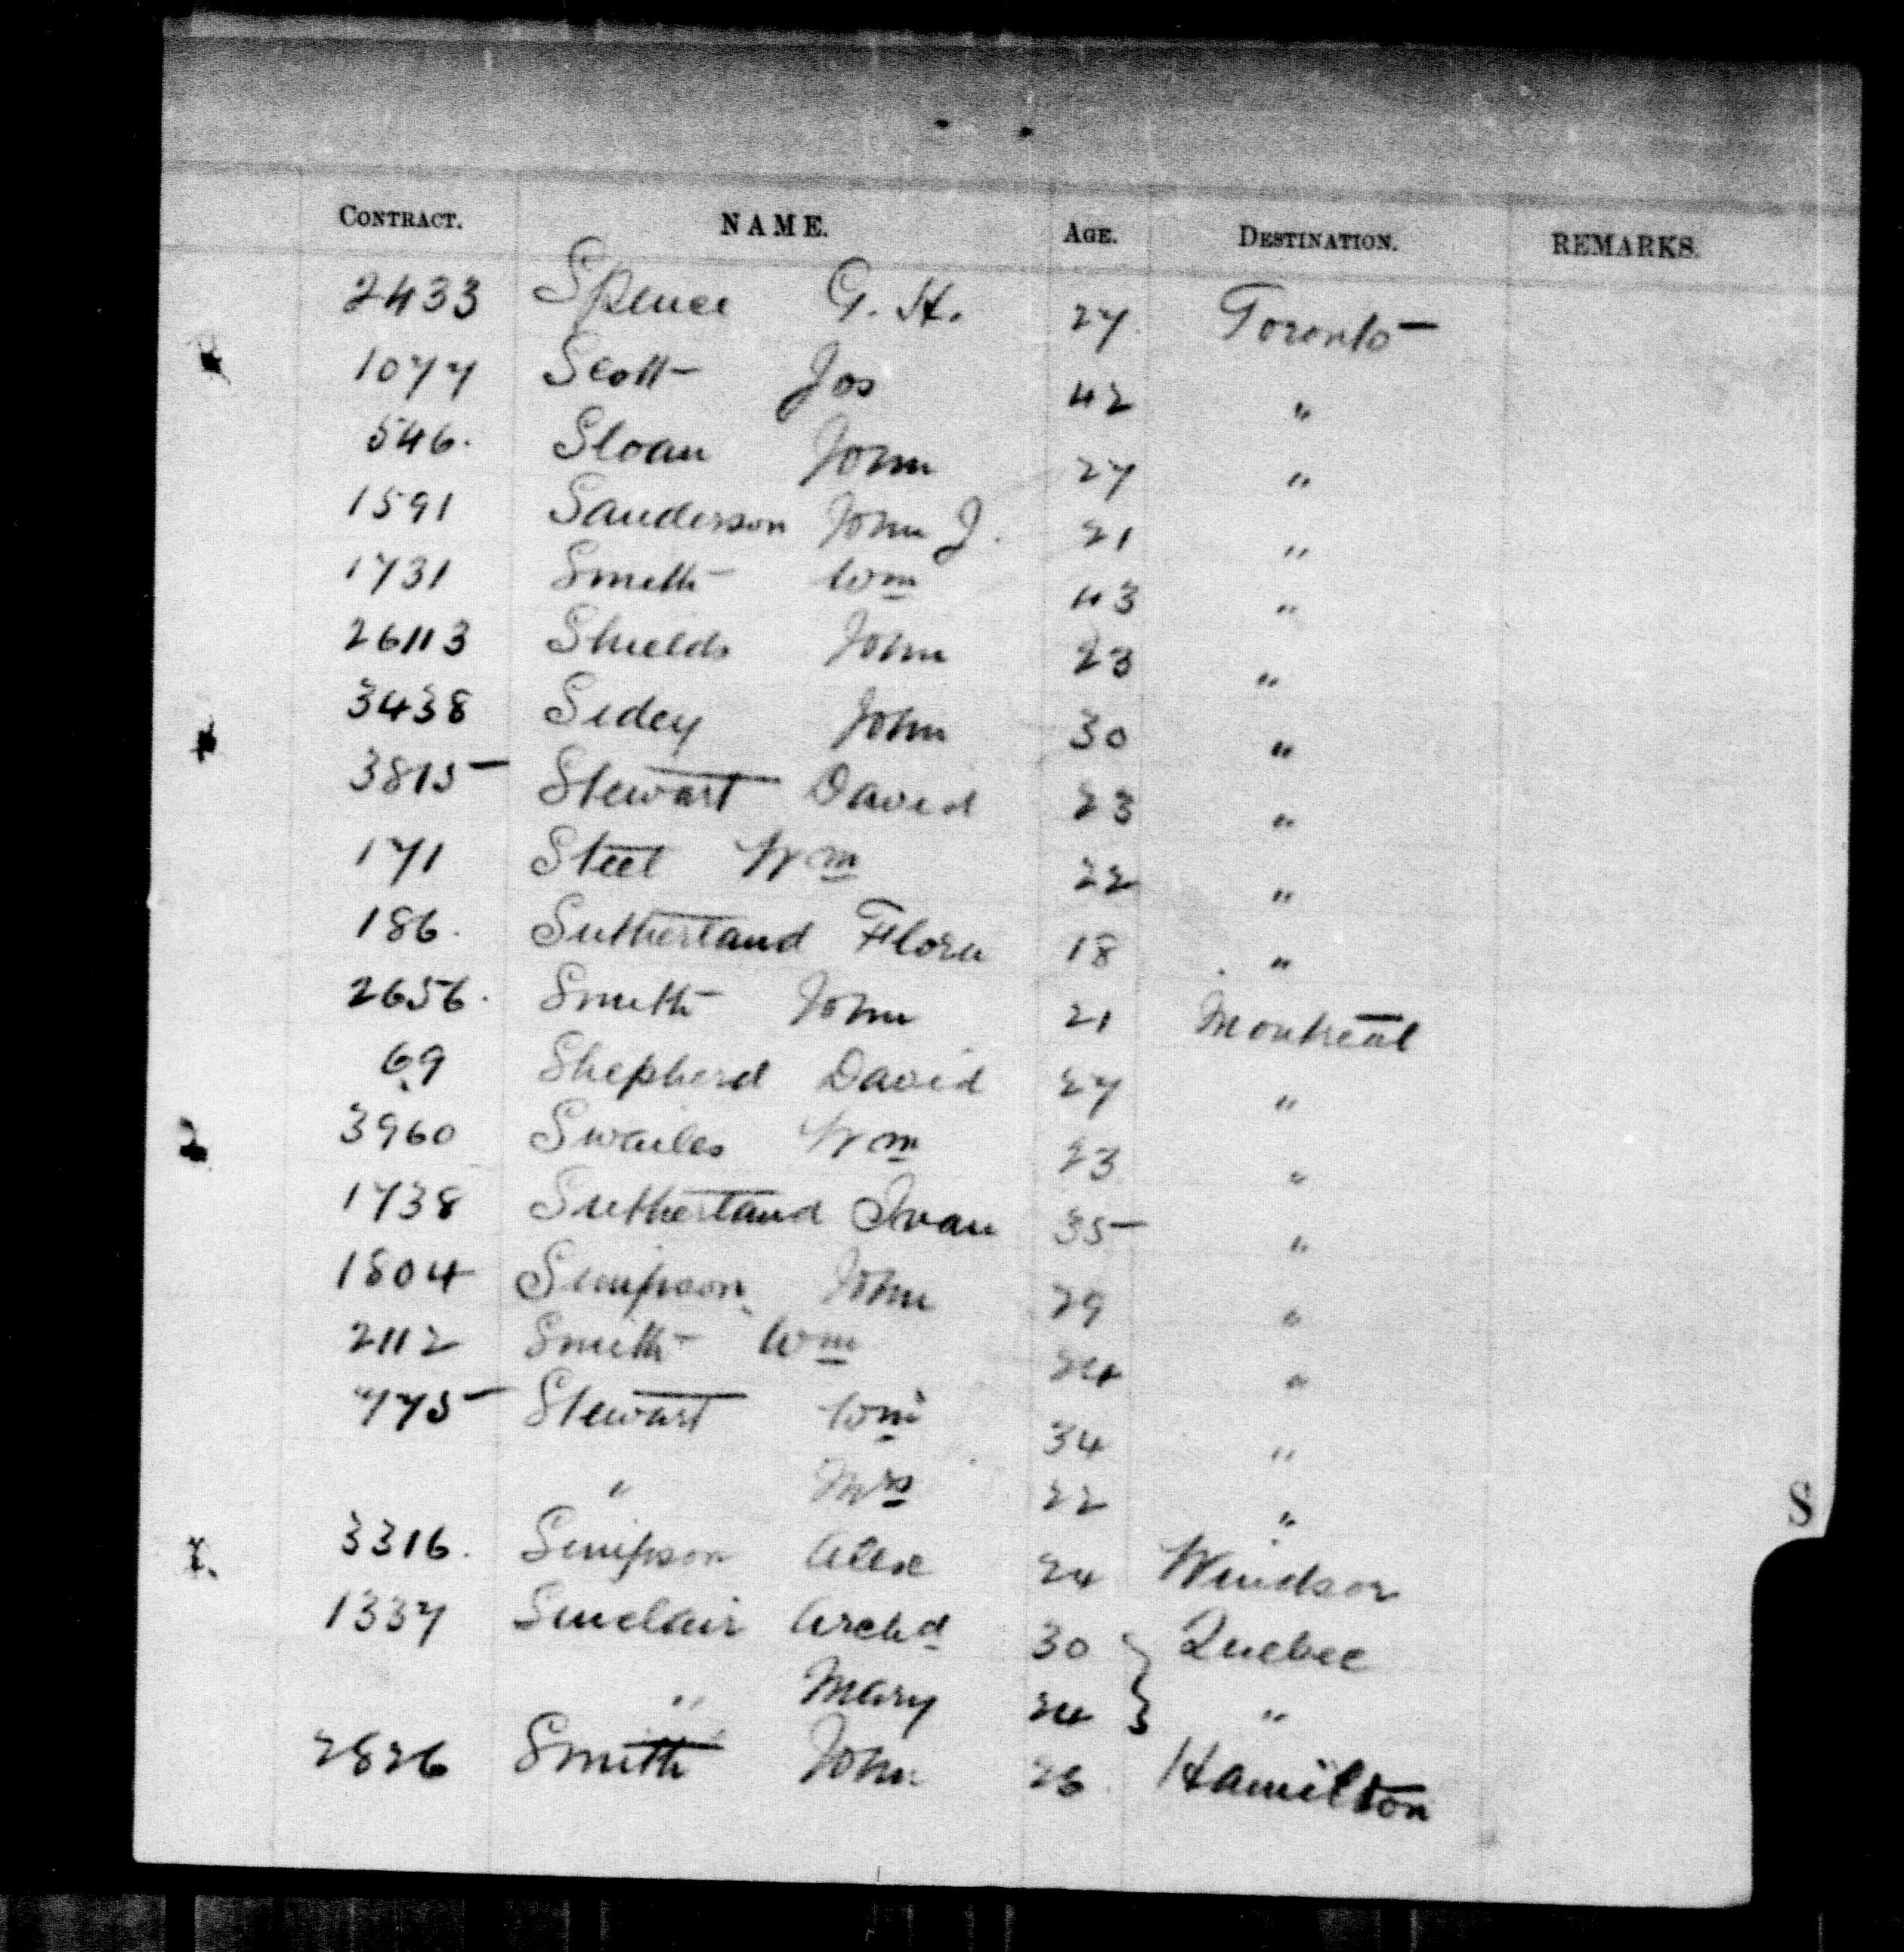 CONTRACT. NAME. AGE. DESTINATION. REMARKS.
2433 Spence G. H. 27 Toronto
1077 Scott Jos 42 "
546. Sloan John 27 "
1591 Sanderson John J. 21 "
1731 Smith Wm 43 "
2643 Shields John 23 "
3438 Sidey John 30 "
3815 Stewart David 23 "
171 Steel Wm 22 "
186. Sutherland Flora 18 "
2656. Smith John 21 Montreal
69 Shepherd David 27 "
3960 Swailes Wm 23 "
1738 Sutherland Ivan 35 "
1804 Simpson John 29 "
2112 Smith Wm 24 "
775 Stewart Wm 34 "
" Mrs 22 "
3316. Simpson Alex 24 Windsor
1337 Sinclair Archd 30 } Quebec
" Mary 24 } "
2826 Smith John 26. Hamilton
S